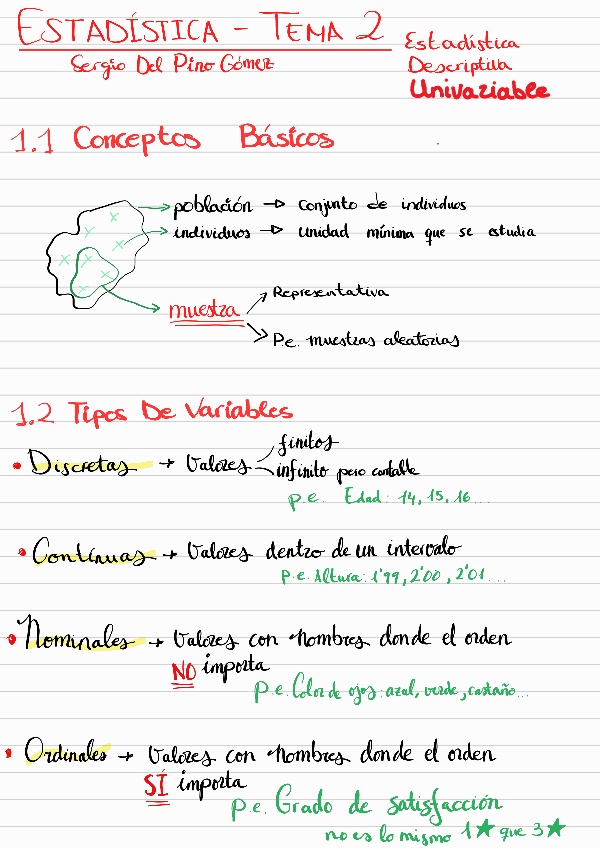 ESTADÍSTICA - TEMA 2
Sergio Del Pino Gómez
Estadística
Descriptiva
Univariable
1.1 Conceptos Básicos
población → conjunto de individuos
individuos → unidad mínima que se estudia
muestra
Representativa
P.e. muestras aleatorias
1.2 Tipos De Variables
• Discretas → Valores
finitos
infinito pero contable
p.e. Edad: 14, 15, 16...
• Contínuas → Valores dentro de un intervalo
p.e. Altura: 1'99, 2'00, 2'01...
• Nominales → Valores con nombres donde el orden
NO importa
p.e. Color de ojos: azul, verde, castaño...
• Ordinales → Valores con nombres donde el orden
SÍ importa
p.e. Grado de satisfacción
no es lo mismo 1★ que 3★